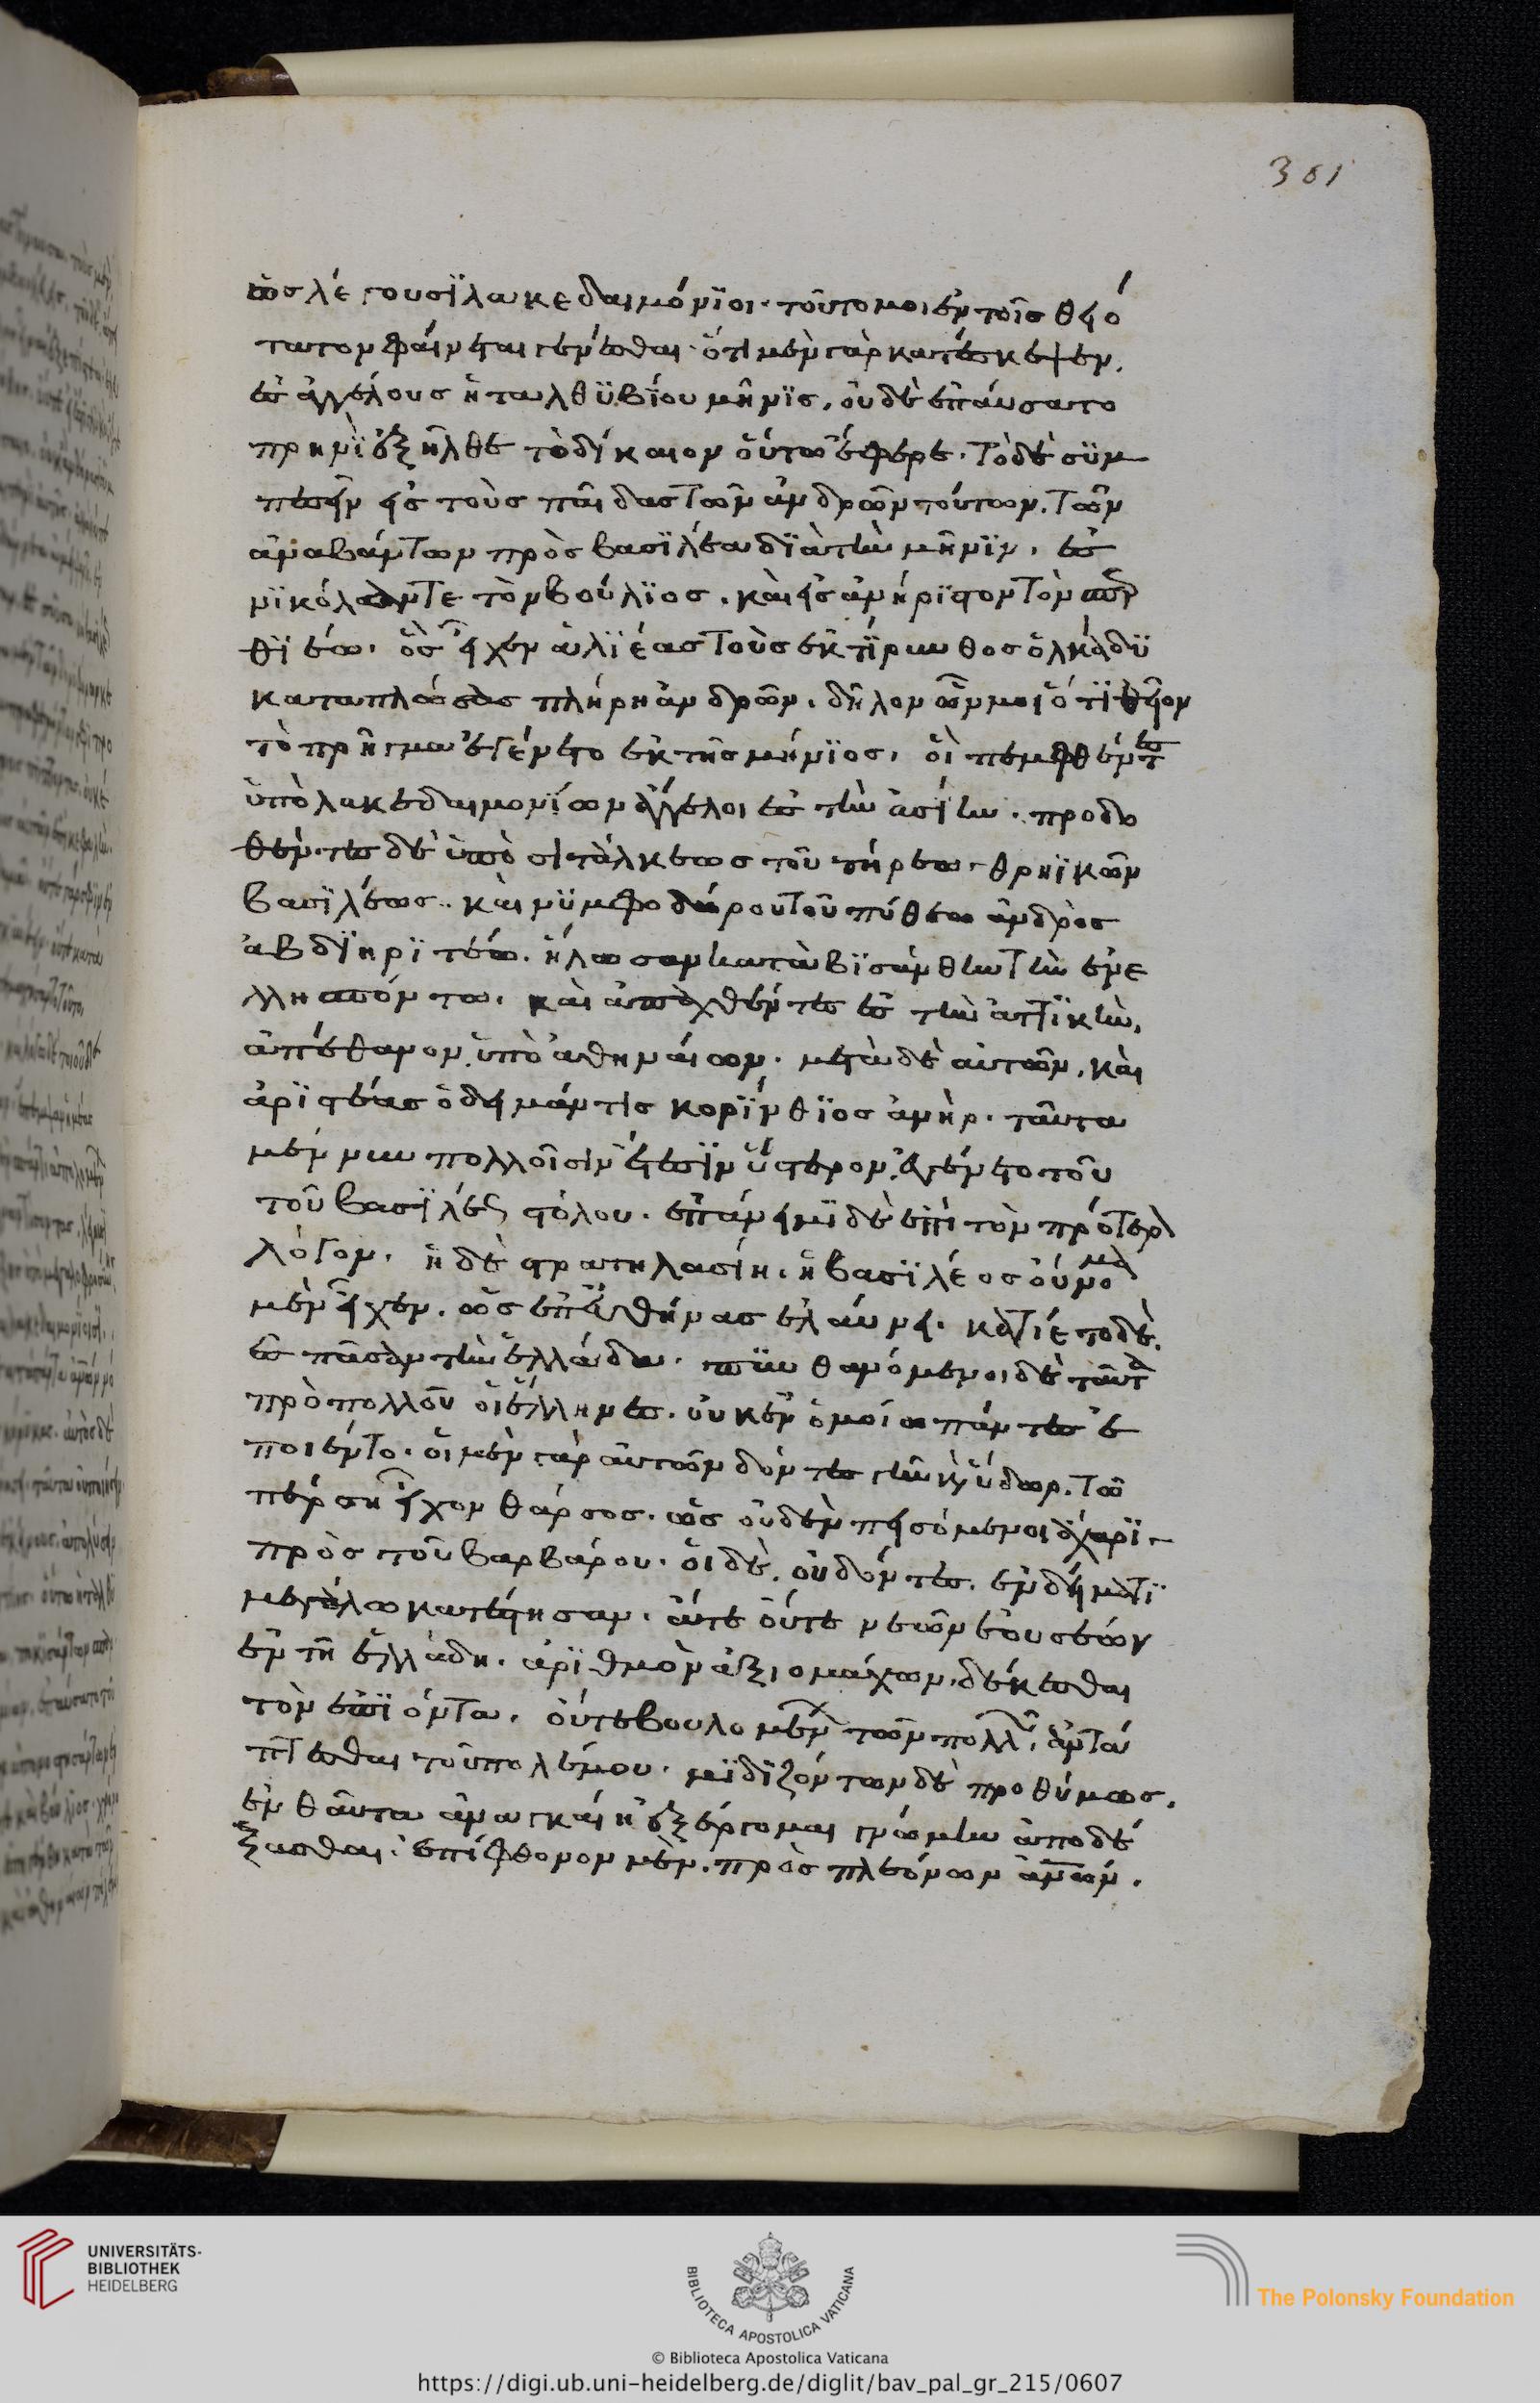 301
ὡς λέγουσϊ λακεδαιμόνϊοι· τοῦτο μοι ἐν τοῖς θειό
τατον φαίνεται γενέσθαι· ὅτι μὲν γὰρ κατέσκηψεν,
ἐς ἀγγέλους ἡ ταλθϋβΐου μῆνϊς, οὐδὲ ἐπαύσατο
πρηνὶ ἐξῆλθε τὸ δίκαιον οὕτω ἔφερε· τὸ δὲ σϋμ
πεσεῖν εἰς τοὺς παῖδας τῶν ἀνδρῶν τούτων, τῶν
ἀναβάντων πρὸς βασϊλέα δϊὰ τὴν μῆνϊν, ἐς
νϊκόλαντε τὸν βούλϊος, καὶ εἰς ἀνήρϊστον τὸν σπερ
θϊέω· ὃς εἷχεν ἁλϊέας τοὺς ἐκ τίρυνθος ὁλκάδϊ
καταπλώσας πλήρη ἀνδρῶν. δῆλον ὦν μοι ὅτϊ θεῖον
τὸ πρῆγμα ἐγένετο ἐκ τῆς μήνϊος, οἳ πεμφθέντες
ὑπὸ λακεδαιμονίων ἄγγελοι ἐς τὴν ἀσίην· προδο
θέντες δὲ ὑπὸ σιτάλκεως τοῦ τήρεω θρηϊκῶν
βασϊλέως· καὶ νϋμφοδώρου τοῦ πύθεω ἀνδρὸς
ἀβδϊηρϊτέω· ἥλωσαν κατὰ βϊσάνθην τὴν ἐνε
λλησπόντω· καὶ ἀπαχθέντες ἐς τὴν ἀττϊκὴν,
ἀπέθανον ὑπὸ ἀθηναίων· μετὰ δὲ αὐτῶν, καὶ
ἀρϊστέας ὁ δειμάντις κορϊνθϊος ἀνὴρ· ταῦτα
μέν νυν πολλοῖσιν ἔτεσϊν ὕστερον, ἐγένετο τοῦ
τοῦ βασϊλέος στόλου· ἐπάνειμϊ δὲ ἐπὶ τὸν πρότερον
λόγον· ἡ δὲ στρατηλασίη, ἡ βασϊλέος οὔνομα
μὲν εἶχεν, ὡς ἐπ' ἀθήνας ἐλαύνει· κατίετο δὲ,
ἐς πᾶσαν τὴν ἑλλάδα· πϋνθανόμενοι δὲ ταῦτα
πρὸ πολλοῦ οἱ ἕλληνες, οὐκ ἐν ὁμοίω πάντες ἐ
ποιεύντο· οἱ μὲν γὰρ αὐτῶν δόντες γῆν κὴ ὕδωρ, τῶ
πέρση εἶχον θάρσος, ὡς οὐδὲν πεισόμενοι ἄχαρϊ
πρὸς τοῦ βαρβάρου· οἱ δὲ, οὐ δόντες, ἐν δείματϊ
μεγάλω κατέστησαν, ἅτε οὔτε νεῶν ἐουσέων
ἐν τῆ ἑλλάδη, ἀρϊθμὸν ἀξιομάχων, δέκεσθαι
τὸν ἐπϊόντα, οὔτε βουλομένων τῶν πολλῶν, ἀντά
πτεσθαι τοῦ πολέμου· μϊδϊζόντων δὲ προθύμως,
ἐνθαῦτα ἀναγκαίη ἐξέργομαι γνώμην ἀποδέ
ξασθαι· ἐπίφθονον μὲν, πρὸς πλεόνων ἀνων.
UNIVERSITÄTS-
BIBLIOTHEK
HEIDELBERG
BIBLIOTECA APOSTOLICA VATICANA
The Polonsky Foundation
© Biblioteca Apostolica Vaticana
https://digi.ub.uni-heidelberg.de/diglit/bav_pal_gr_215/0607